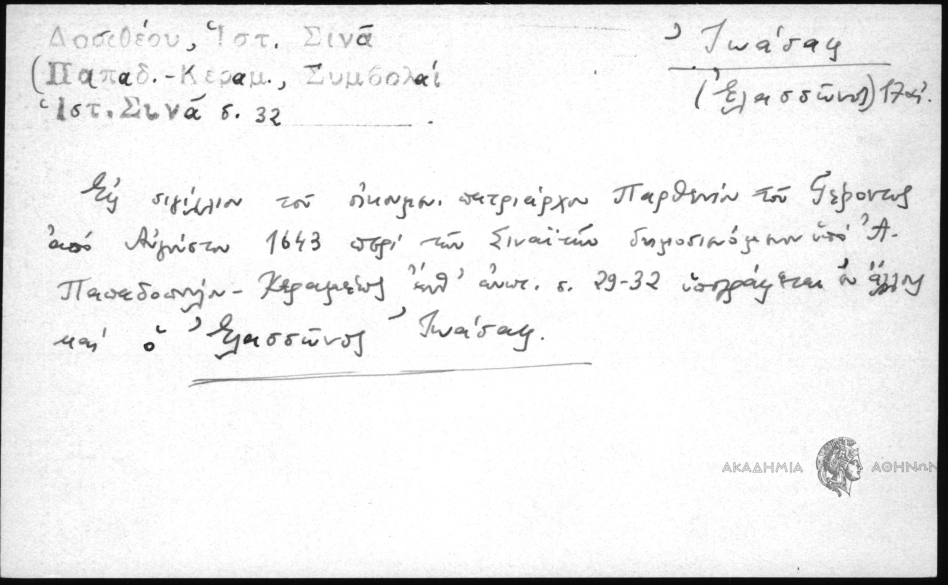 Δοσιθέου, Ἱστ. Σινᾶ
(Παπαδ.-Κεραμ., Συμβολαί
Ἱστ. Σινᾶ σ. 32
Ἰωάσαφ
(Ἐλασσῶνος) 17 αἰ.
Εἰς σιγίλλιον τοῦ οἰκουμ. πατριάρχου Παρθενίου τοῦ Γέροντος
ἀπό Αὐγούστου 1643 περί τῶν Σιναϊτῶν δημοσιευόμενον ὑπό Ἀ.
Παπαδοπούλου-Κεραμέως ἔνθ' ἀνωτ. σ. 29-32 ὑπογράφεται ἐν ἄλλοις
καί ὁ Ἐλασσῶνος Ἰωάσαφ.
ΑΚΑΔΗΜΙΑ ΑΘΗΝΩΝ